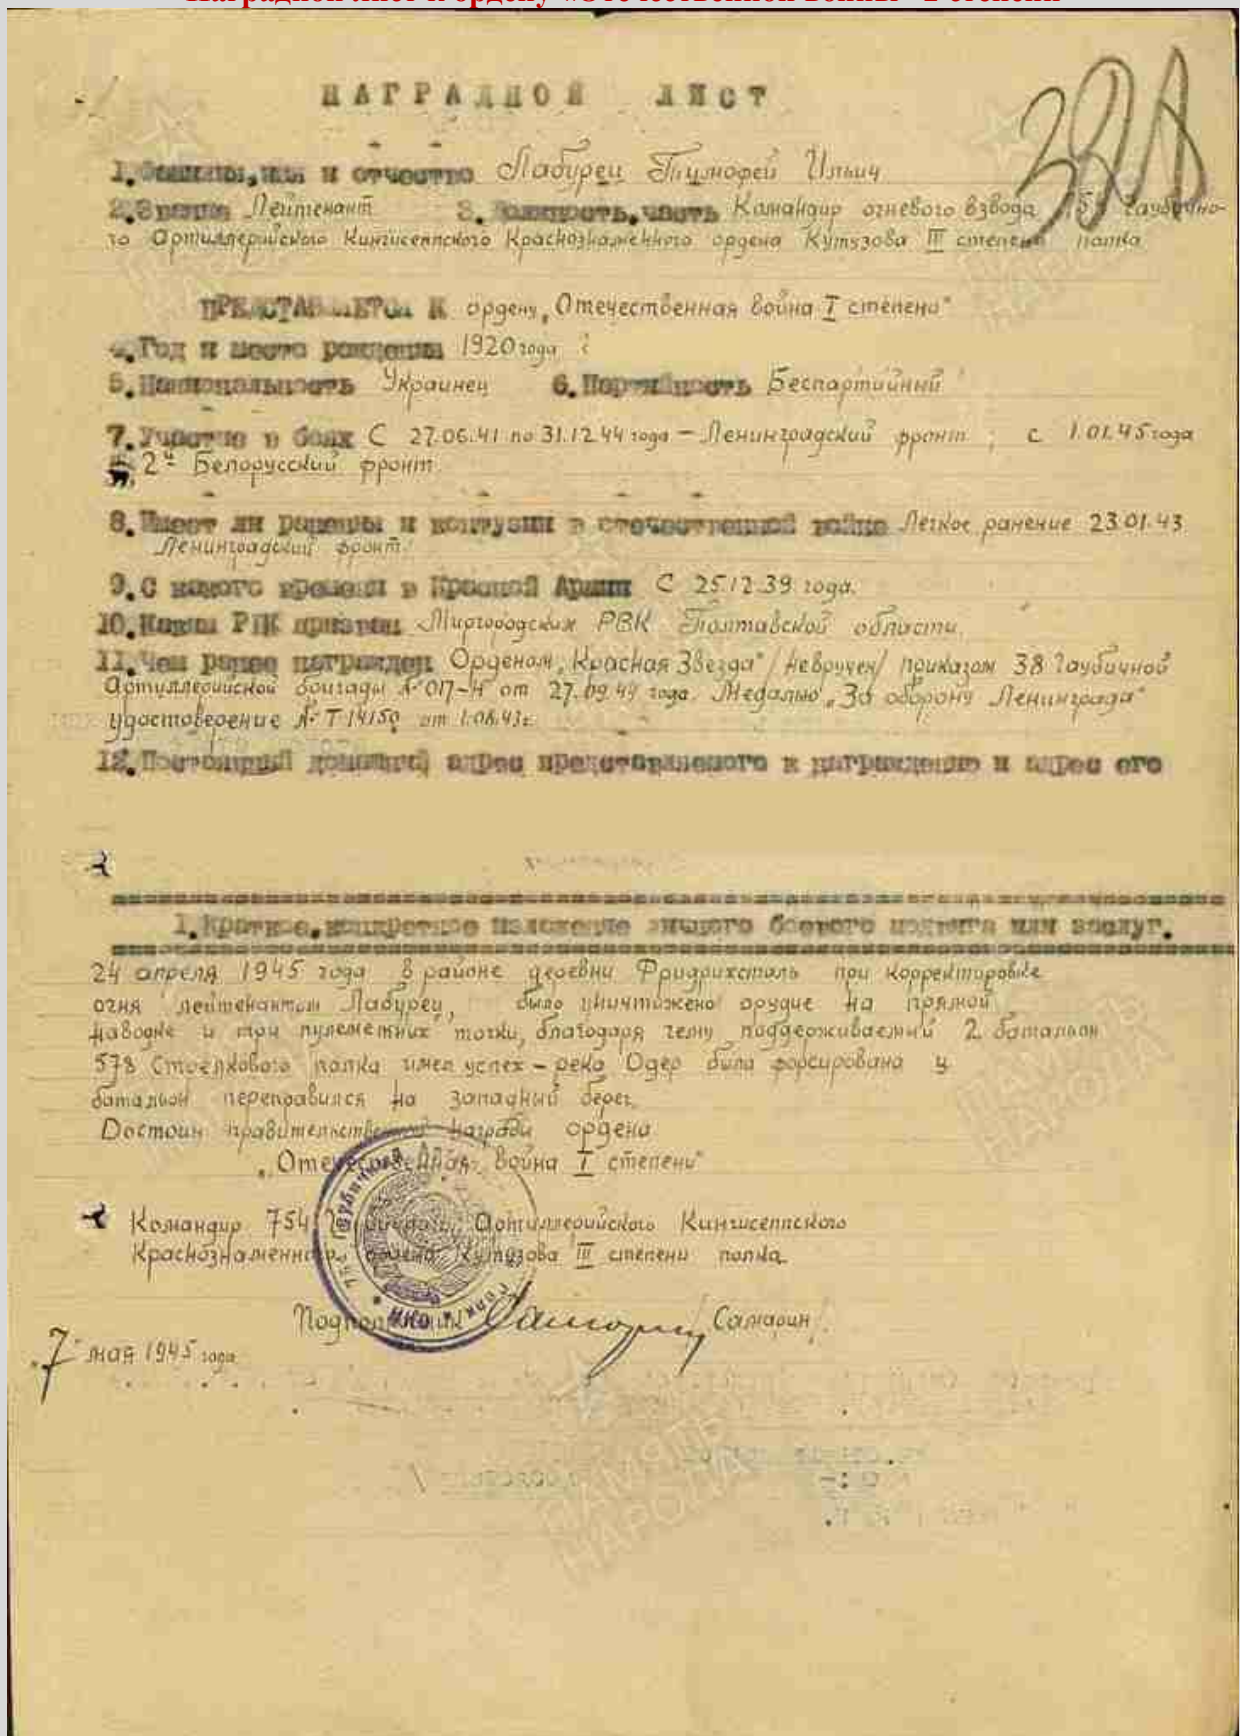 Наградной лист к ордену «Отечественной войны» 2 степени
НАГРАДНОЙ ЛИСТ
1. Фамилия, имя и отчество Лабурец Тимофей Ильич
2. Звание Лейтенант 3. Должность, часть Командир огневого взвода 754 гаубично-
го Артиллерийского Кингисеппского Краснознаменного ордена Кутузова III степени полка
ПРЕДСТАВЛЯЕТСЯ К ордену „Отечественная война I степени"
4. Год и место рождения 1920 года
5. Национальность Украинец 6. Партийность Беспартийный
7. Участие в боях С 27.06.41 по 31.12.44 года – Ленинградский фронт, с 1.01.45 года
2й Белорусский фронт.
8. Имеет ли ранения и контузии в отечественной войне Легкое ранение 23.01.43
Ленинградский фронт.
9. С какого времени в Красной Армии С 25.12.39 года.
10. Каким РВК призван Миргородским РВК Полтавской области
11. Чем ранее награжден Орденом „Красная Звезда" /невручен/ приказом 38 Гаубичной
Артиллерийской бригады № 017-Н от 27.09.44 года. Медалью „За оборону Ленинграда"
удостоверение № Т 14150 от 1.08.43г.
12. Постоянный домашний адрес представляемого к награждению и адрес его
1. Краткое, конкретное изложение личного боевого подвига или заслуг.
24 апреля 1945 года в районе деревни Фридрихсталь при корректировке
огня лейтенантом Лабурец, было уничтожено орудие на прямой
наводке и три пулеметных точки, благодаря чему поддерживаемый 2 батальон
578 Стрелкового полка имел успех – река Одер была форсирована и
батальон переправился на западный берег.
Достоин правительственной награды ордена
„Отечественная война I степени"
Командир 754 Гаубичного Артиллерийского Кингисеппского
Краснознаменного ордена Кутузова III степени полка
Подполковник /Самарин/
7 мая 1945 года
ПАМЯТЬ
НАРОДА